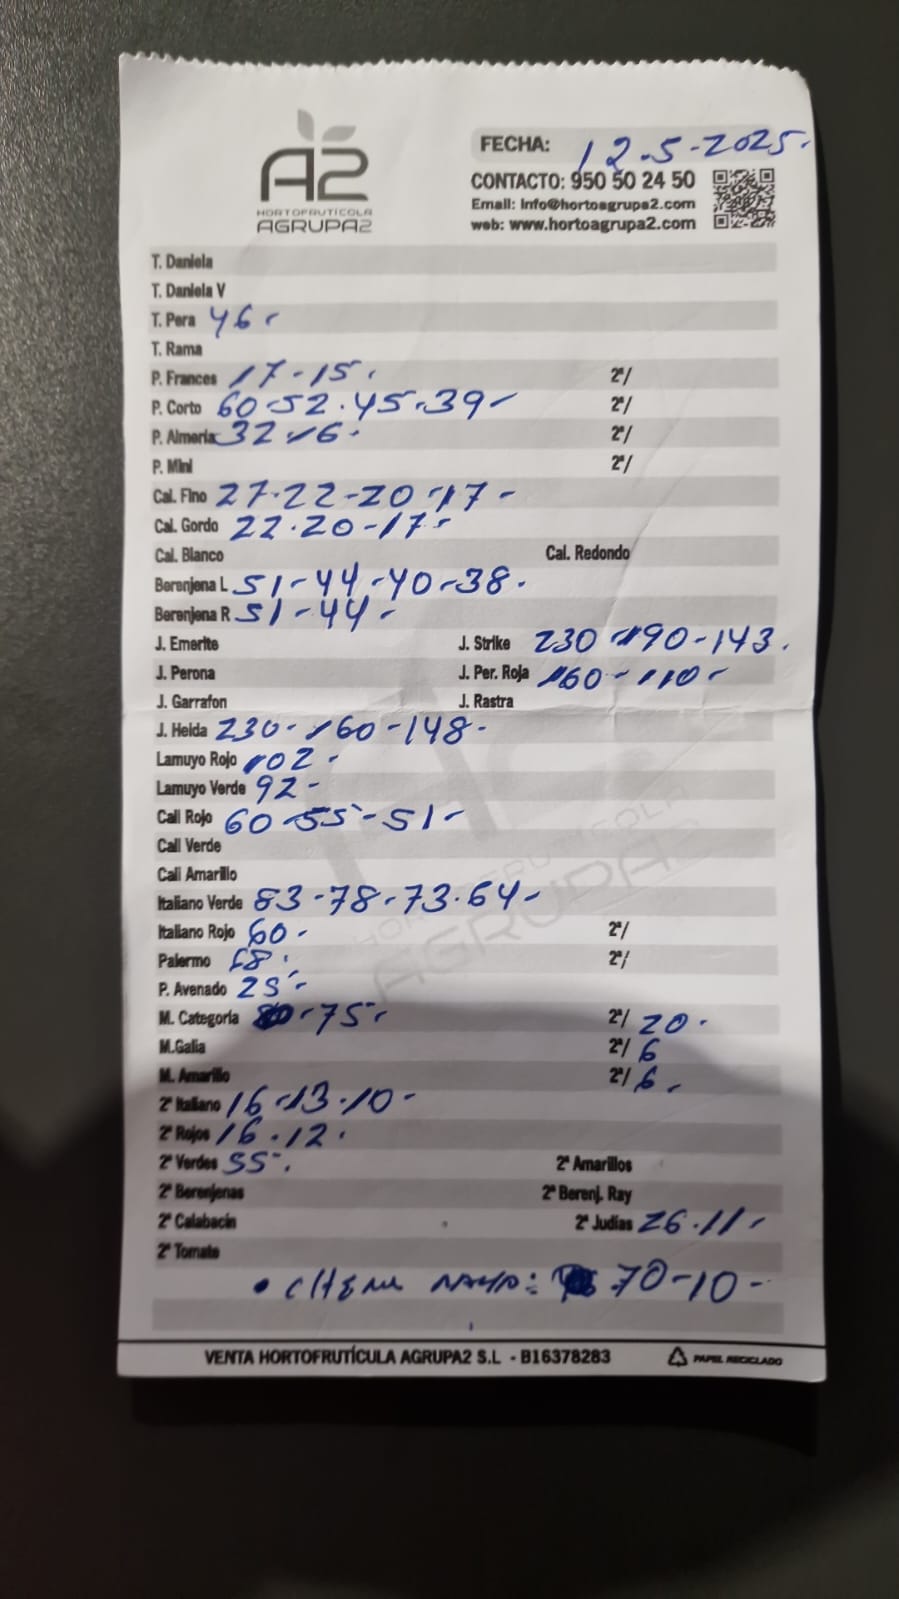 A2
HORTOFRUTÍCOLA
AGRUPA2
FECHA: 12-5-2025.
CONTACTO: 950 50 24 50
Email: info@hortoagrupa2.com
web: www.hortoagrupa2.com
T. Daniela
T. Daniela V
T. Pera 46-
T. Rama
P. Frances 17-15. 2ª/
P. Corto 60-52.45-39- 2ª/
P. Almeria 32-16- 2ª/
P. Mini 2ª/
Cal. Fino 27-22-20-17-
Cal. Gordo 22.20-17-
Cal. Blanco Cal. Redondo
Berenjena L 51-44-40-38.
Berenjena R 51-44-
J. Emerite J. Strike 230-190-143.
J. Perona J. Per. Roja 160-110-
J. Garrafon J. Rastra
J. Helda 230-160-148-
Lamuyo Rojo 102-
Lamuyo Verde 92-
Cali Rojo 60-55-51-
Cali Verde
Cali Amarillo
Italiano Verde 83-78-73.64-
Italiano Rojo 60- 2ª/
Palermo 2ª/
P. Avenado 25-
M. Categoria -75- 2ª/ 20.
M.Galia 2ª/ 6
M. Amarillo 2ª/ 6.
2ª Italiano 16-13.10-
2ª Rojos 16.12.
2ª Verdes 55-. 2ª Amarillos
2ª Berenjenas 2ª Berenj. Ray
2ª Calabacin 2ª Judias 26.11-
2ª Tomate
70-10-
VENTA HORTOFRUTÍCULA AGRUPA2 S.L - B16378283 PAPEL RECICLADO